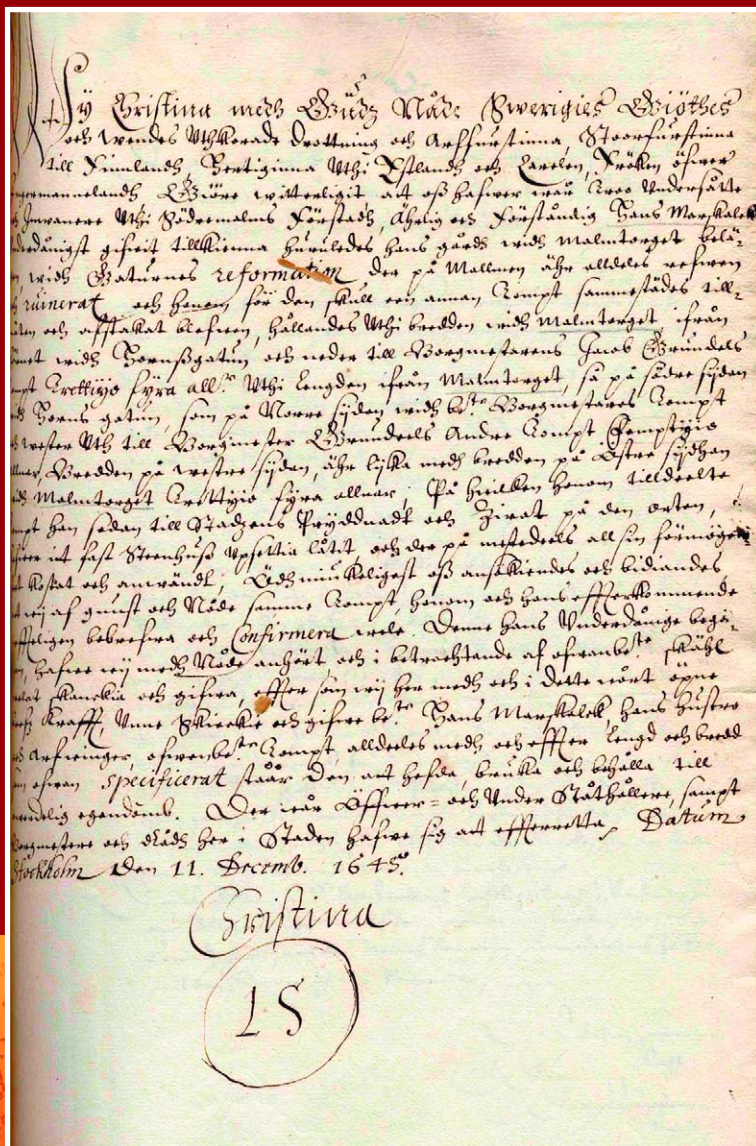 Wij Christina medh Gudz Nåde Sweriges Giöthes
och Wendes Uthkorade Drottning och Arffurstinna, Stoorfurstinna
till Finlandh, Hertiginna Uthi Estlandh och Carelen, Fröken öfwer
Ingermannelandh Giöre witterligit att oss hafwer wår Troo Undersåtte
Inwånere Uthi Södremalms Förstadh, Ährlig och Förståndig Hans Marskalck
gifwit tillkienna huruledes hans gårdh widh Malmtorget belä-
widh Gaturnes reformation der på Mallmen ähr alldeles refwen
ruinerat och honom för den skull een annan Tompt sammestädes till-
och afftakat blefwen, hållandes Uthi bredden widh Malmtorget ifrån
widh Hornsgatun och neder till Borgmesterens Jacob Grundels
Trettiyo fyra all:r Uthi Lengden ifrån Malmtorget, så på södre sijdan
Horns gatun, som på Norre sijdan widh be:te Borgmesteres Tompt
wester Uth till Borgmester Grundels Andre Tompt Femptiyio
Bredden på westre sijdan, ähr lijka medh bredden på Östre sijdhan
Malmtorget Trettiyio fyra allnar; På hwilken honom tilldeelte
han sedan till Stadzens Prydnadt och Zirat på den orten,
itt fast Steenhuus Upsettia låtit, och der på mestedeels all sin förmögen-
kostat och anwändt; Ödhmiukeligest oss ansökiendes och bidiandes
wij af gunst och Nåde samme Tompt, honom och hans effterkommende
bebrefwa och Confirmera wele. Denne hans Underdånige begä-
hafwe wij medh Nåde anhört och i betrachtande af ofwanbe:te skähl
skänckia och gifwa, effter som wij her medh och i dette wårt öpne
Krafft, Unne Skienckie och gifwe be:te Hans Marskalck, hans hustro
Arfwinger, ofwenbe:te Tompt, alldeeles medh och effter Lengd och bredd
ofwan specificerat står den att hefda, bruka och behålla till
egendomb. Der wår Öffwer- och Under Ståthållere, sampt
Borgmestere och Rådh her i Staden hafwe sig att effterretta, Datum
Stockholm Den 11. Decemb. 1645.
Christina
LS